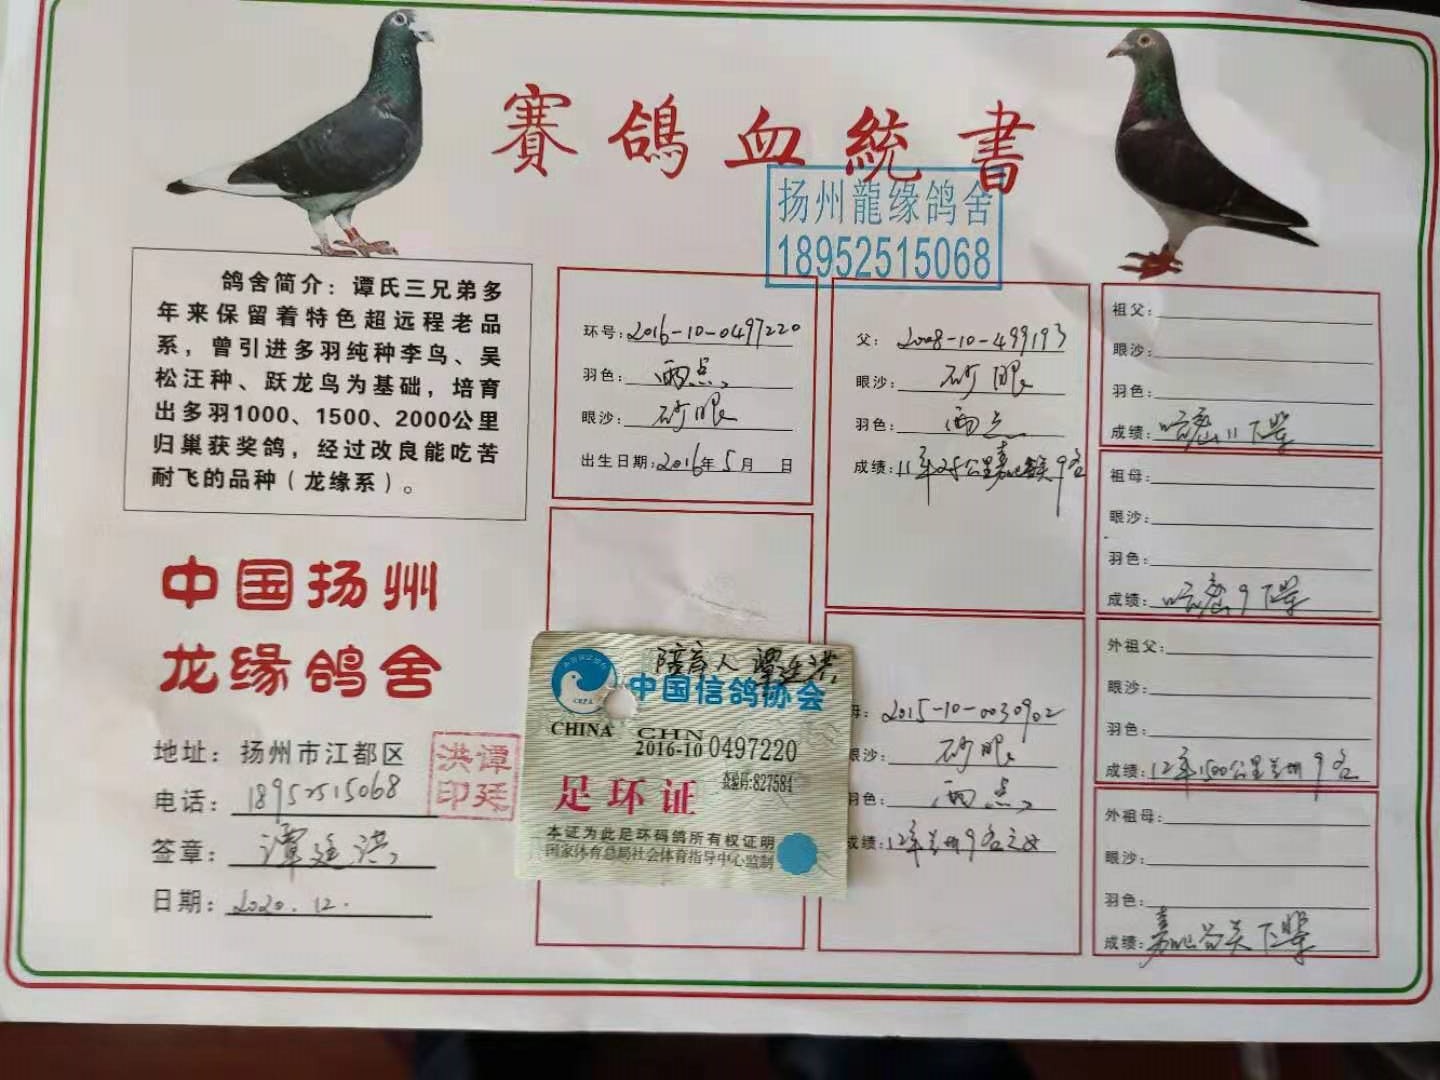 賽鴿血統書
扬州龍缘鸽舍
18952515068
鸽舍简介：谭氏三兄弟多
年来保留着特色超远程老品
系，曾引进多羽纯种李鸟、吴
松汪种、跃龙鸟为基础，培育
出多羽1000、1500、2000公里
归巢获奖鸽，经过改良能吃苦
耐飞的品种（龙缘系）。
中国扬州
龙缘鸽舍
地址：扬州市江都区
电话：18952515068
签章：谭廷洪
日期：2020.12.
洪谭
印廷
环号：2016-10-0497220
羽色：雨点
眼沙：砂眼
出生日期：2016年5月 日
陪育人 谭廷洪
中国信鸽协会
CHINA CHN
2016-10 0497220
查验码:827584
足环证
本证为此足环码鸽所有权证明
国家体育总局社会体育指导中心监制
父：2008-10-499193
眼沙：砂眼
羽色：雨点
成绩：11年 公里嘉峪关9名
母：2015-10-0030902
眼沙：砂眼
羽色：雨点
成绩：12年兰州9名之女
祖父：
眼沙：
羽色：
成绩：哈密11下辈
祖母：
眼沙：
羽色：
成绩：哈密9下辈
外祖父：
眼沙：
羽色：
成绩：12年1500公里兰州9名
外祖母：
眼沙：
羽色：
成绩：嘉峪关下辈